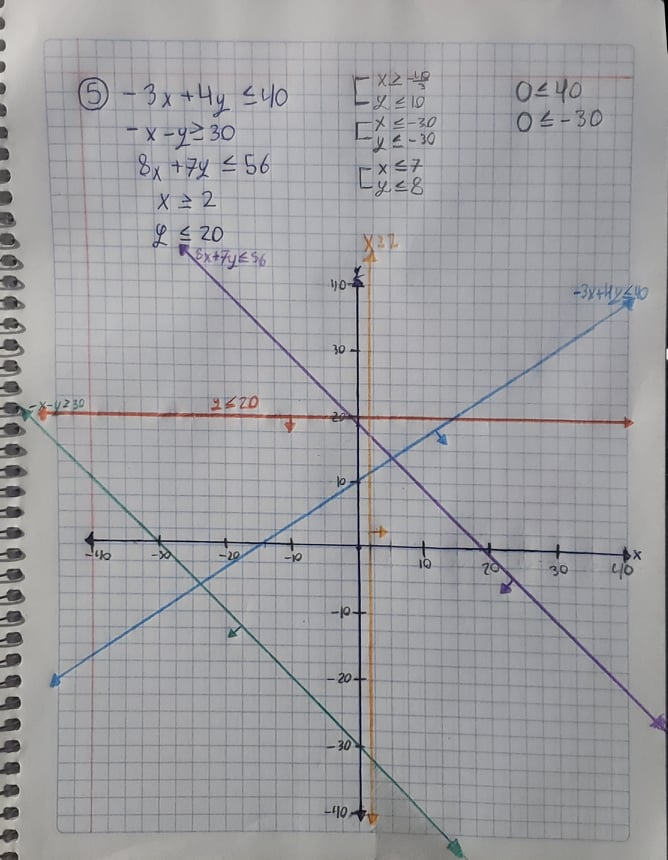 5 -3x+4y ≤40
-x-y≥30
8x+7y ≤ 56
x ≥ 2
y ≤ 20
y ≤ 10
x ≤ -30
y ≤ -30
x ≤ 7
y ≤ 8
0 ≤ 40
0 ≤ -30
x ≥ 2
8x+7y≤56
-3x+4y≤40
-x-y≥30
y ≤ 20
y
40
30
20
10
-40
-30
-20
-10
10
20
30
40
x
-10
-20
-30
-40